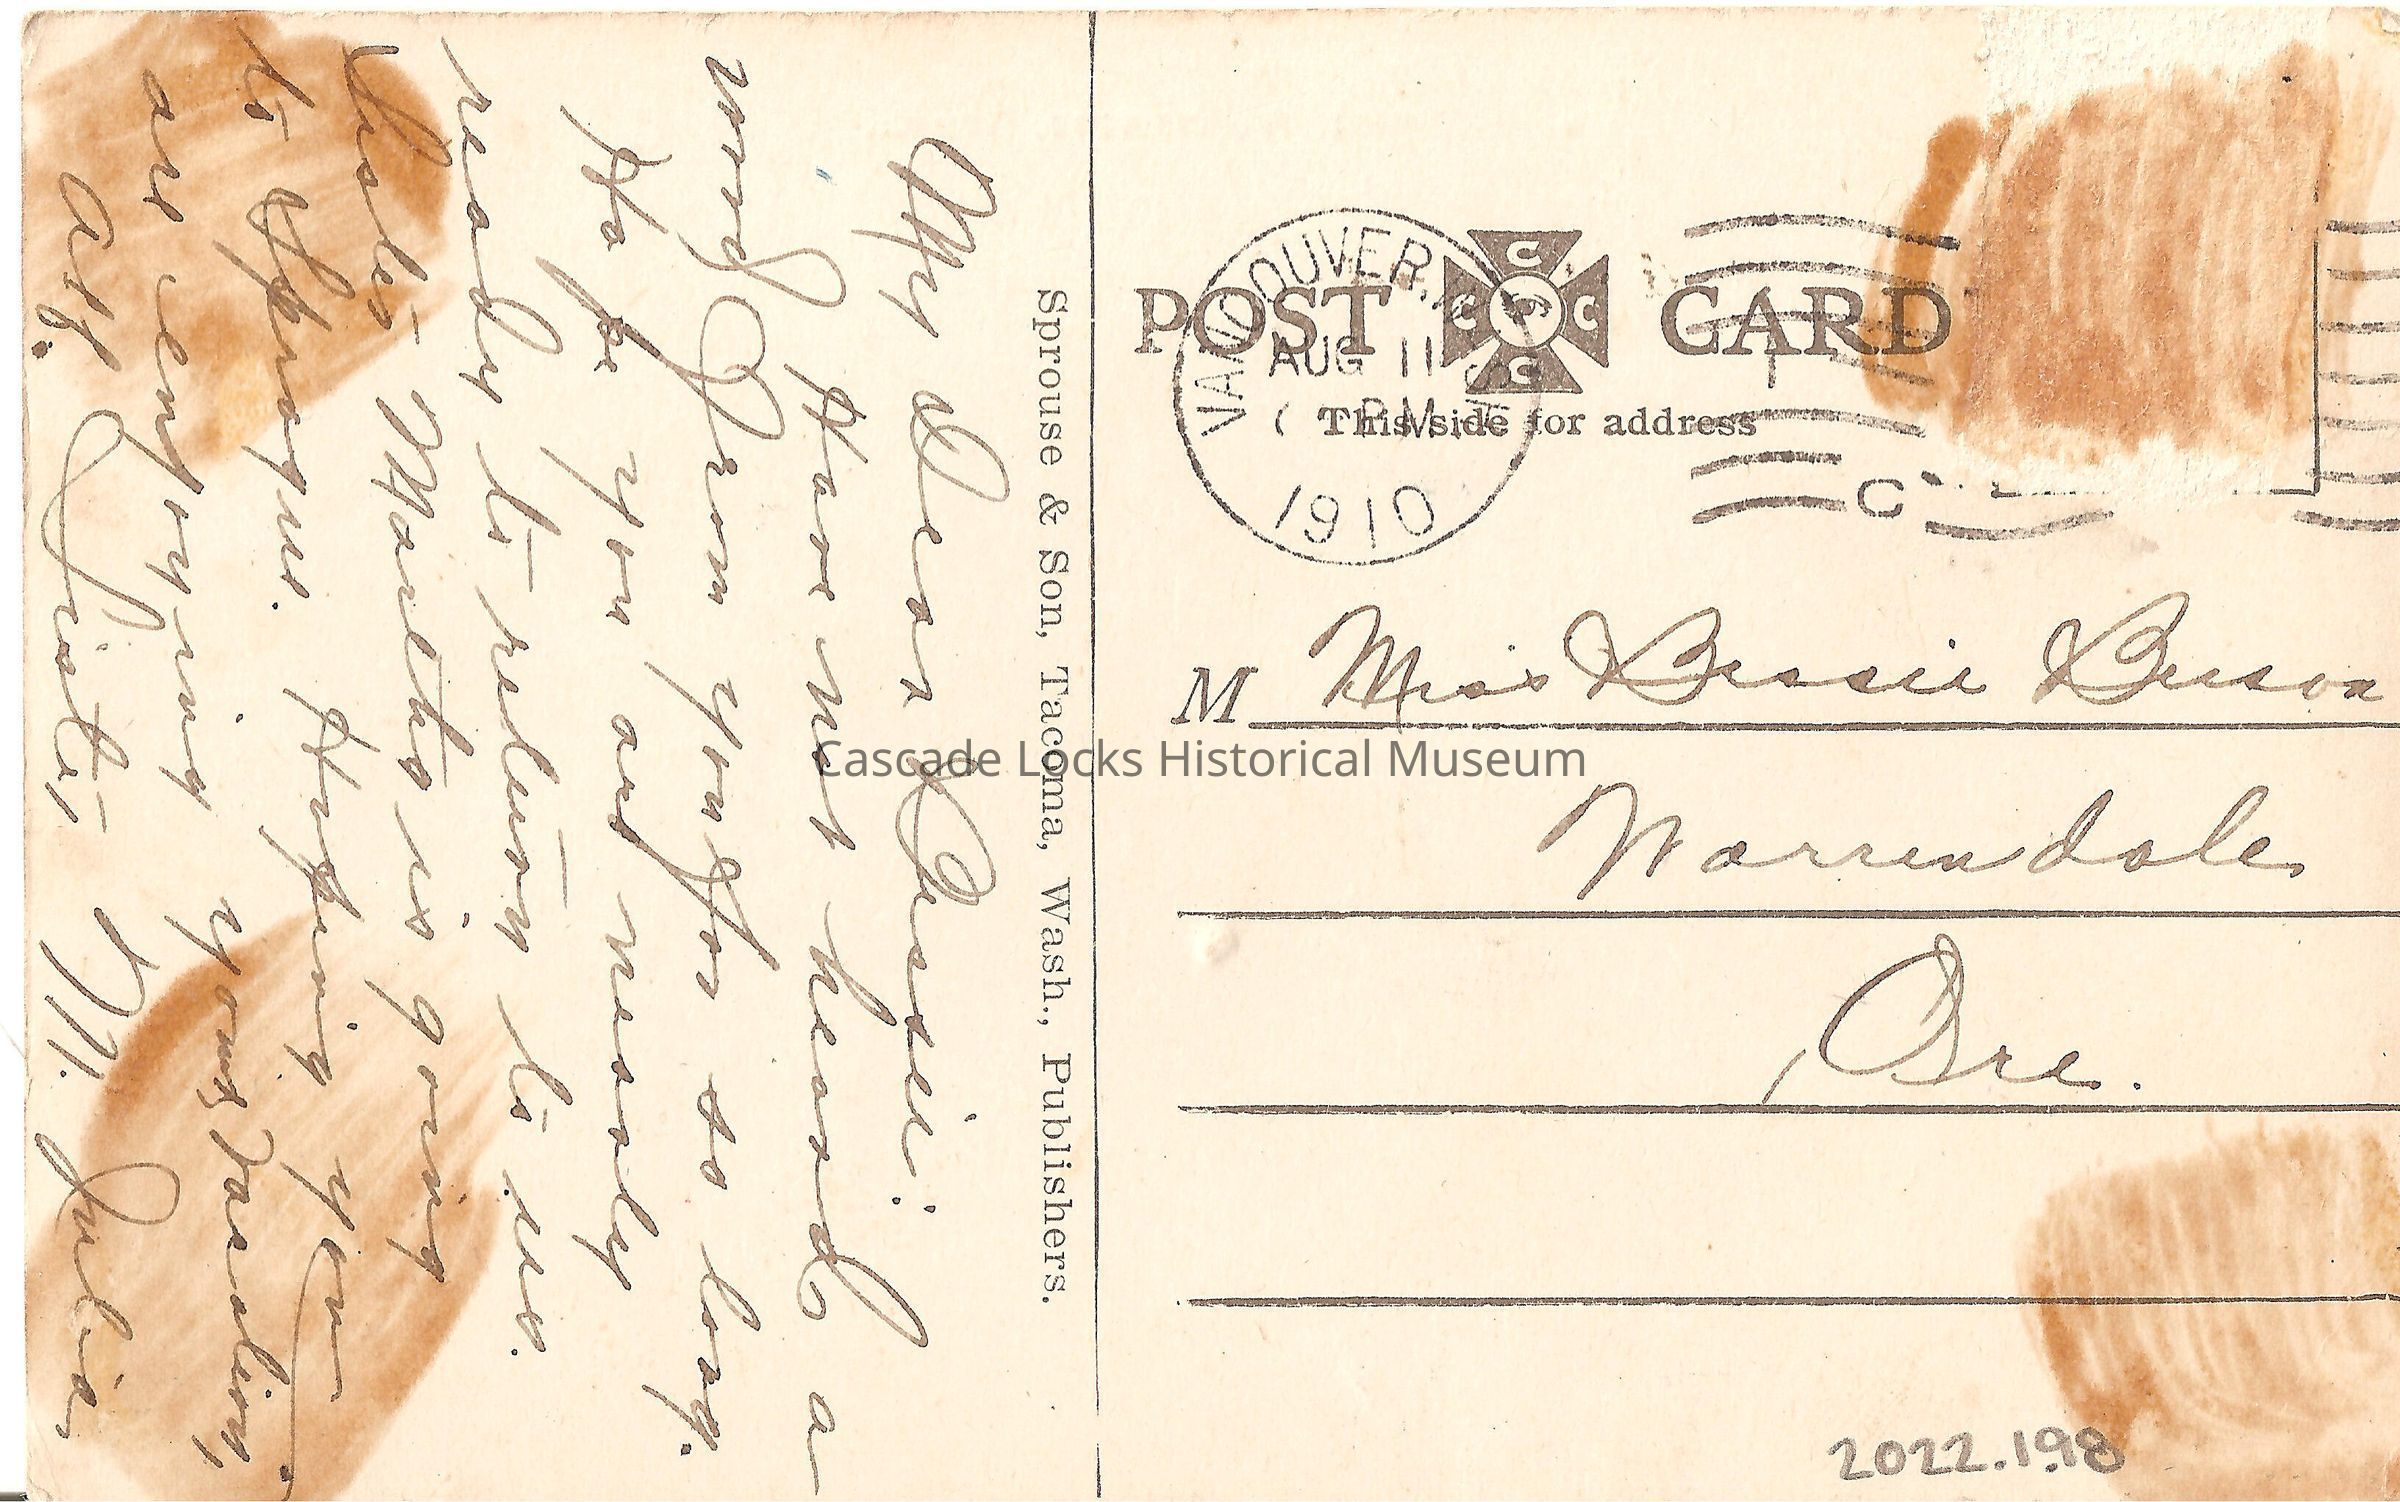 My dear Bessie:
Have not heard a
word from you for so long.
Hope you are nearly
ready to return to us.
Sister Martha is going
to Sprague. Hoping you
are enjoying yourself,
Att. Sister M. Julia
Sprouse & Son, Tacoma, Wash., Publishers.
POST CARD
C C C C
This side for address
VANCOUVER,
AUG 11
PM
1910
C
M Miss Bessie
Warrendale
Ore.
Cascade Locks Historical Museum
2022.1.98